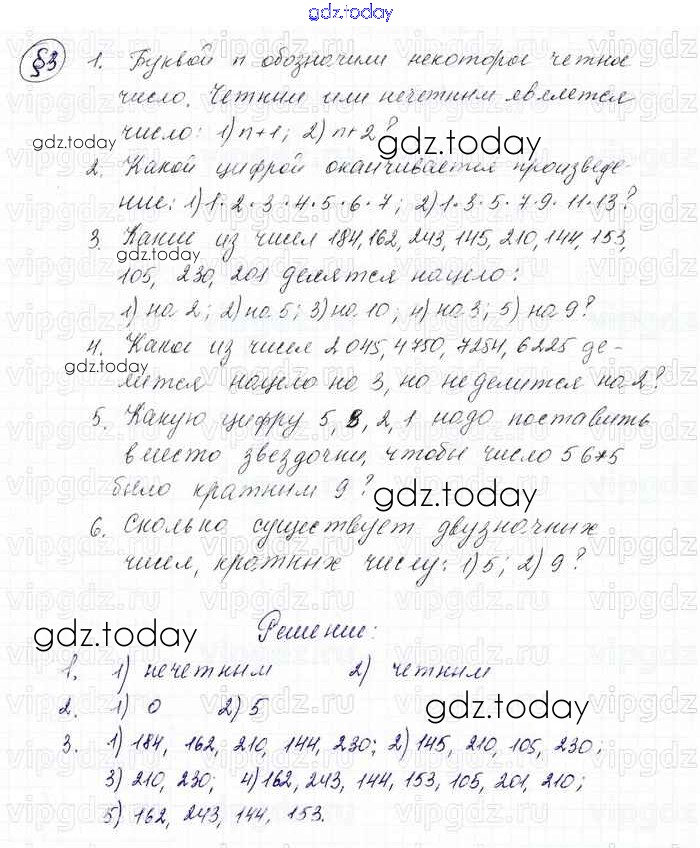 gdz.today
§3 1. Буквой n обозначили некоторое четное
число. Четным или нечетным является
число: 1) n+1; 2) n+2?
gdz.today gdz.today
2. Какой цифрой оканчивается произведе-
ние: 1) 1·2·3·4·5·6·7; 2) 1·3·5·7·9·11·13?
3. Какие из чисел 184, 162, 243, 145, 210, 144, 153,
105, 230, 201 делятся нацело:
1) на 2; 2) на 5; 3) на 10; 4) на 3; 5) на 9?
gdz.today
4. Какое из чисел 2045, 4750, 7254, 6225 де-
лится нацело на 3, но не делится на 2?
5. Какую цифру 5, 8, 2, 1 надо поставить
вместо звездочки, чтобы число 56*5
было кратным 9?
gdz.today
6. Сколько существует двузначных
чисел, кратных числу: 1) 5; 2) 9?
Решение:
gdz.today
1. 1) нечетным 2) четным
2. 1) 0 2) 5
gdz.today
3. 1) 184, 162, 210, 144, 230; 2) 145, 210, 105, 230;
3) 210, 230; 4) 162, 243, 144, 153, 105, 201, 210;
5) 162, 243, 144, 153.